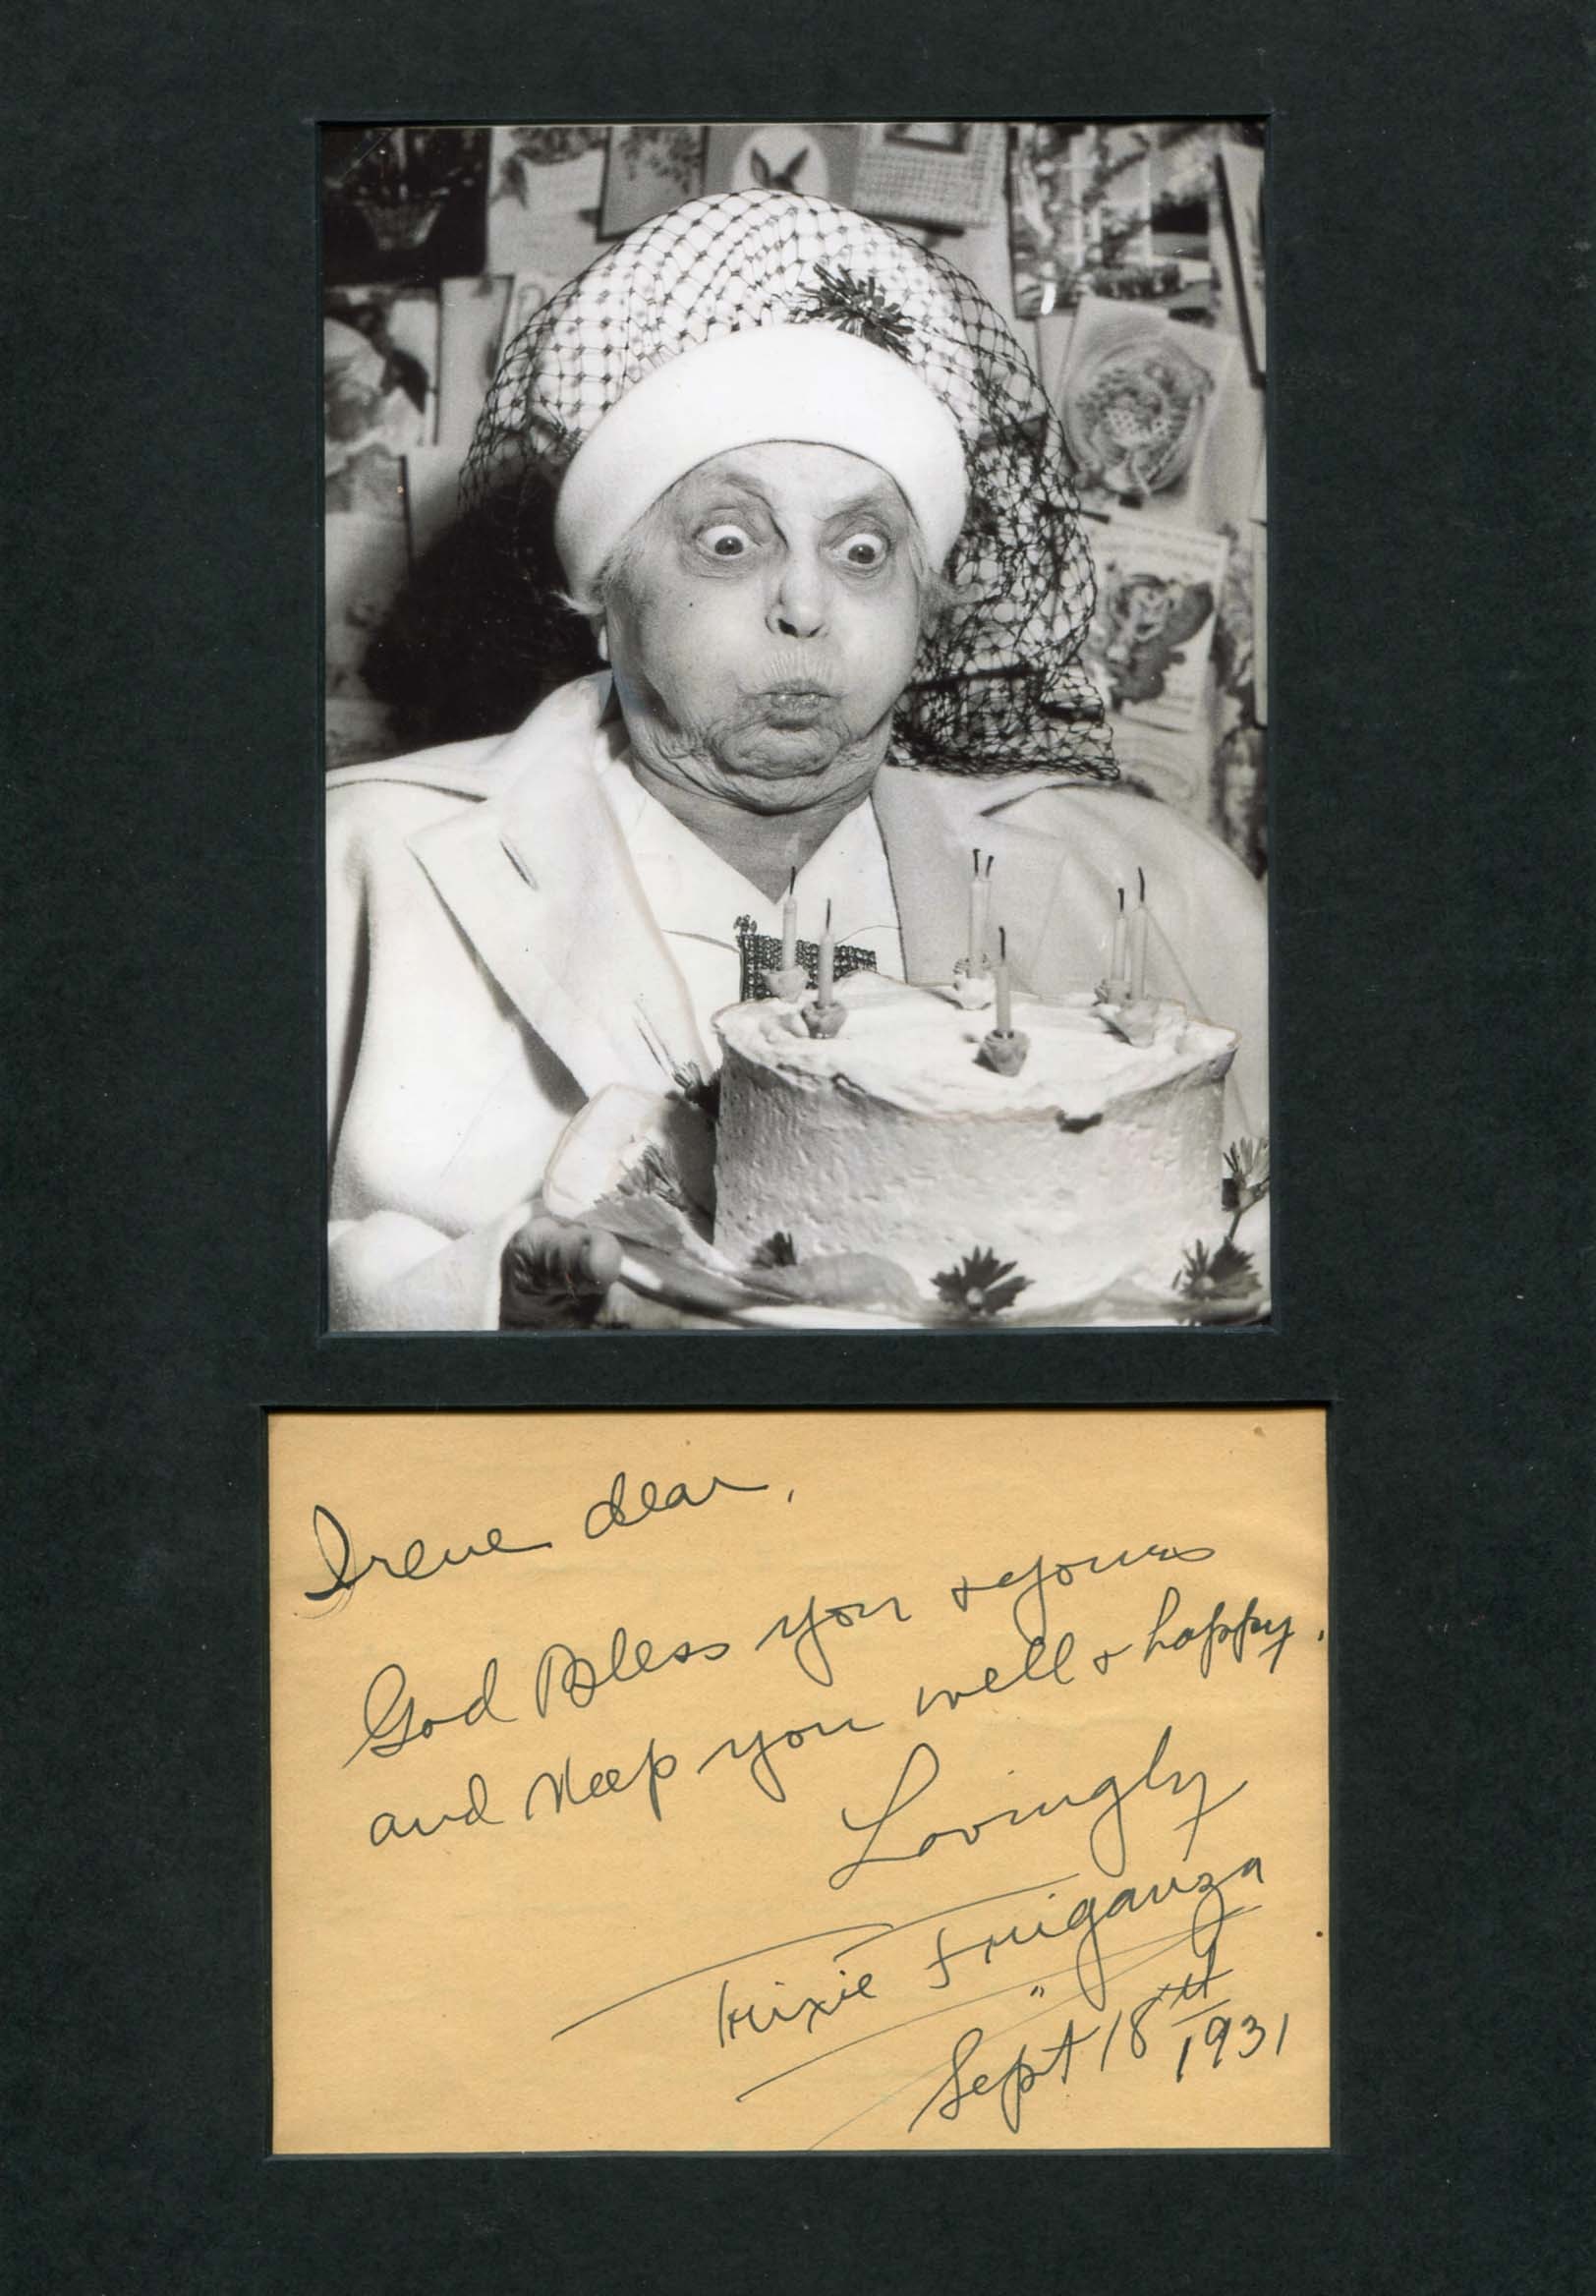 Irene dear,
God Bless you & yours
and Keep you well & happy.
Lovingly
Trixie Friganza
"
Sept 18th
1931